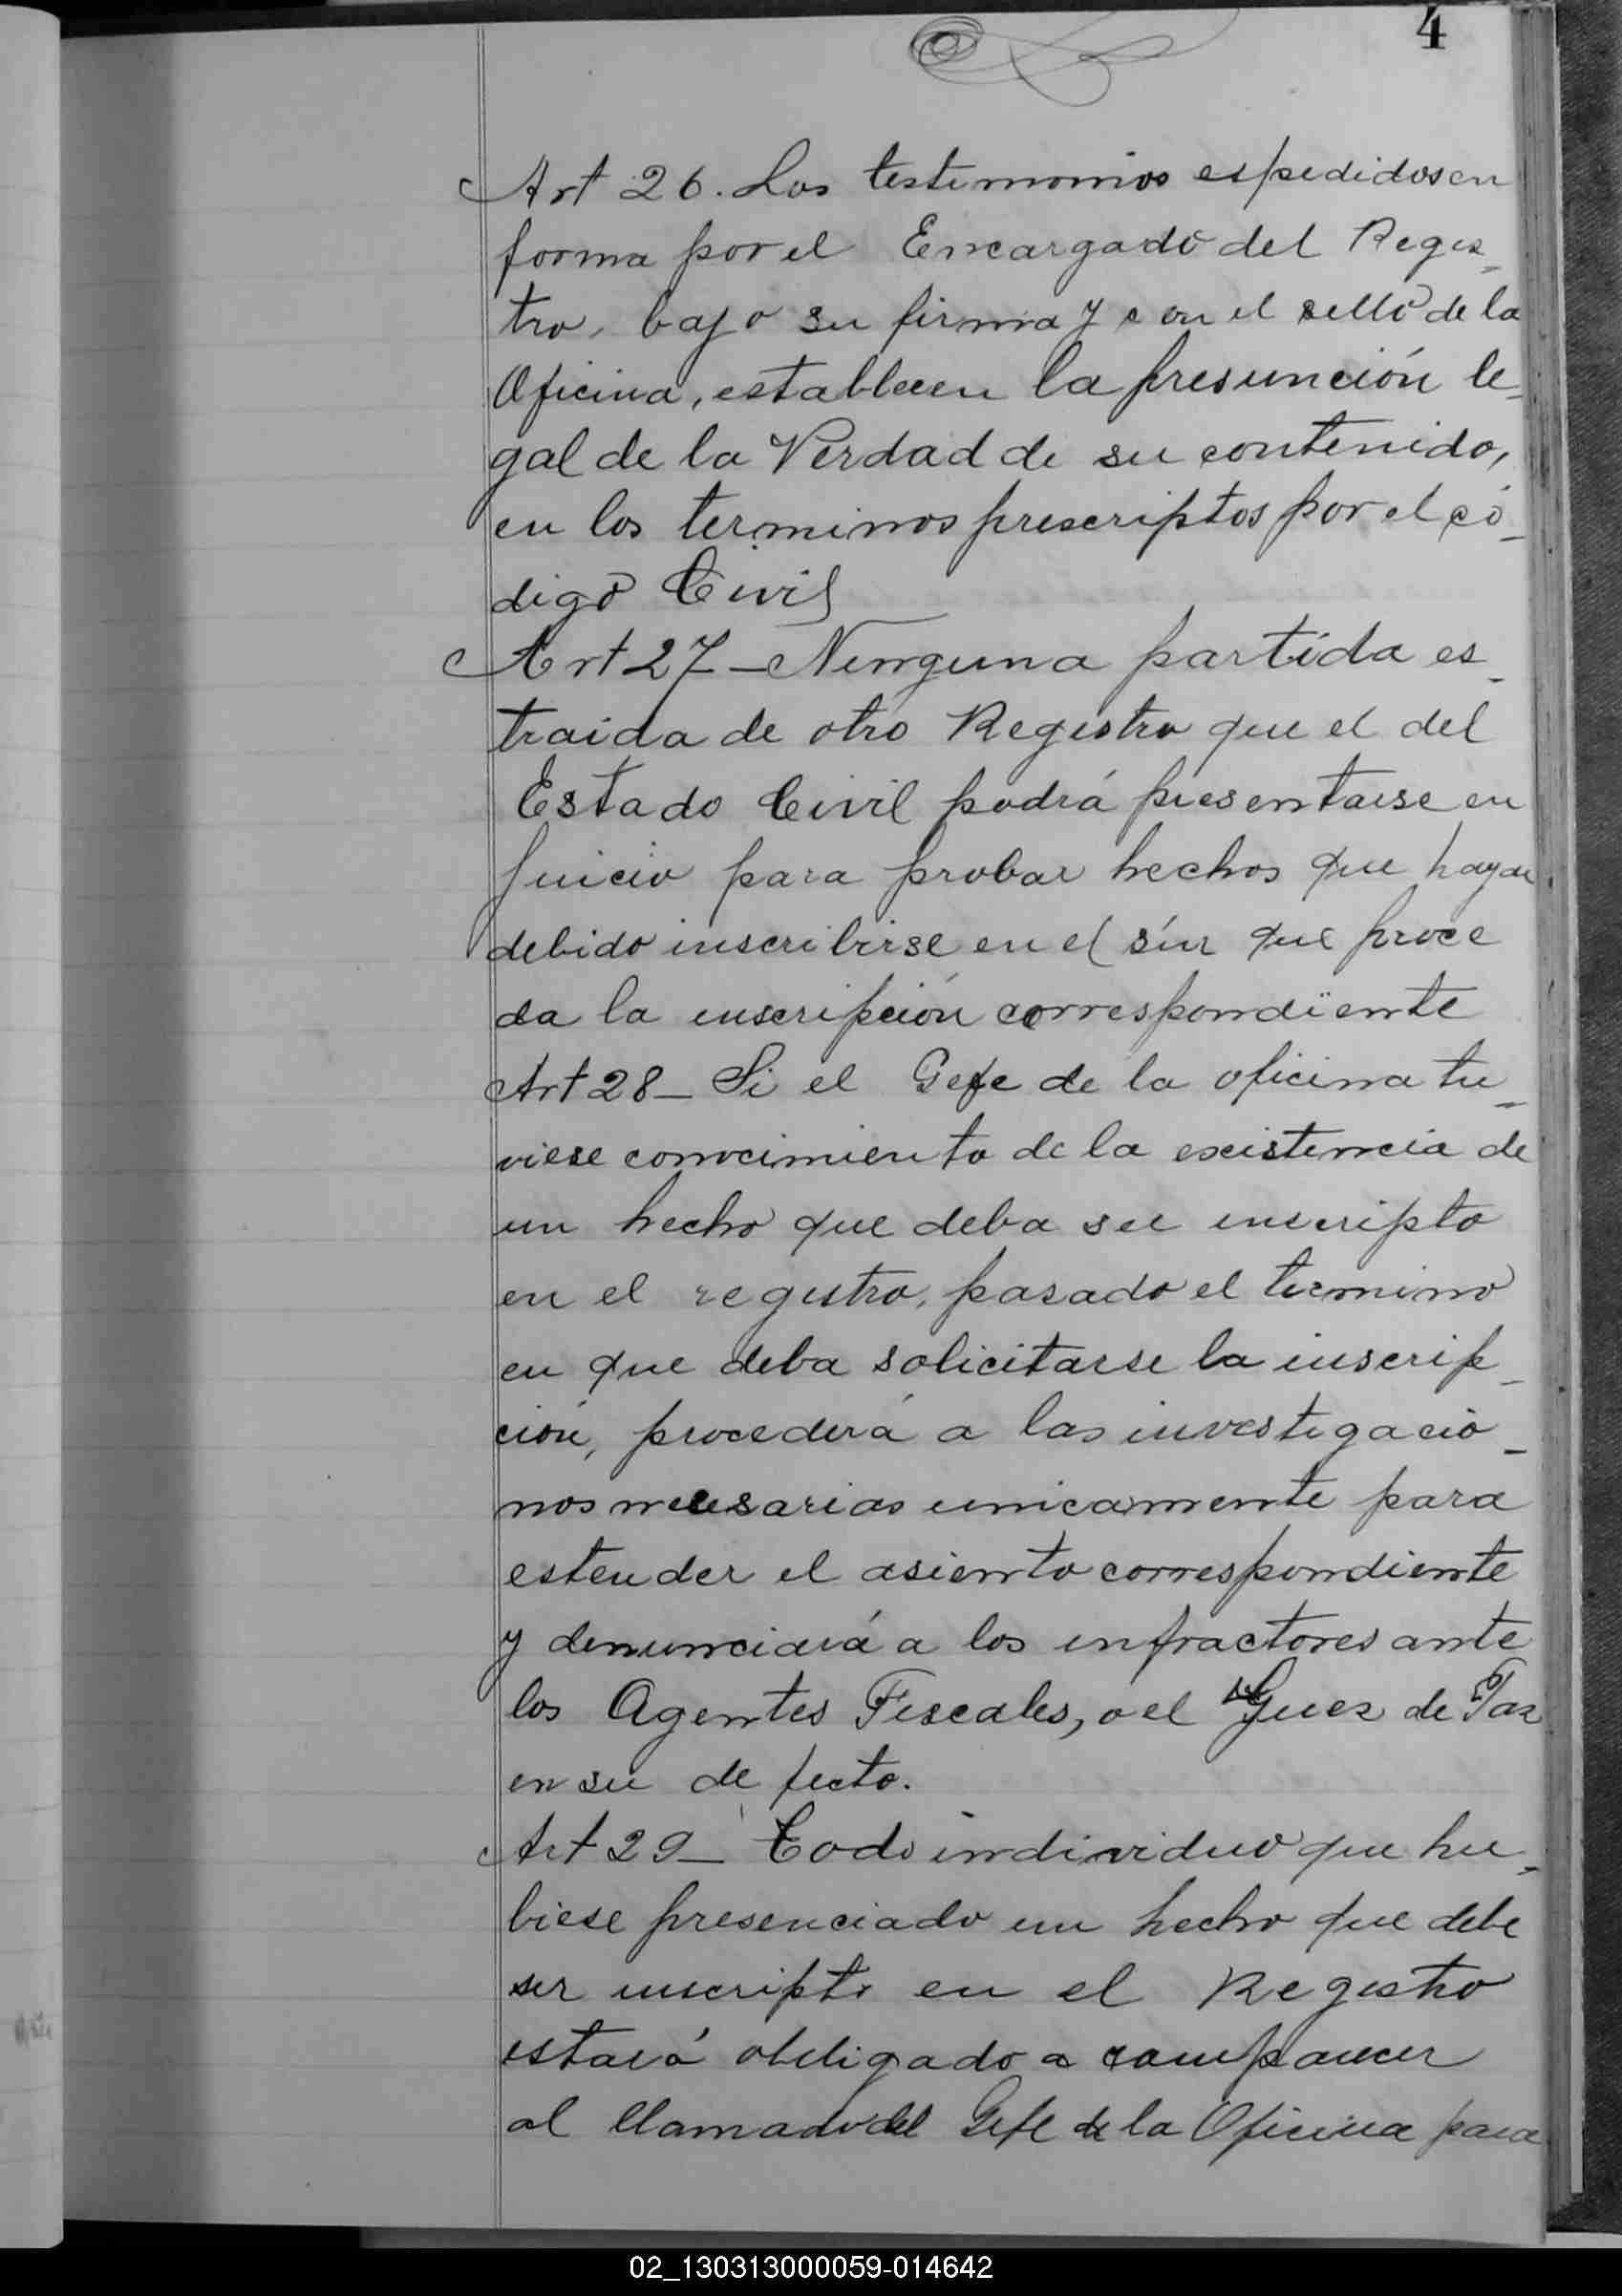 4
Art 26. Los testimonios espedidos en
forma por el Encargado del Regis_
tro, bajo su firma y con el sello de la
Oficina, establecen la presunción le_
gal de la Verdad de su contenido,
en los terminos prescriptos por el có_
digo Civil
Art 27_Ninguna partida es_
traida de otro Registro que el del
Estado Civil podrá presentarse en
Juicio para probar hechos que hayan
debido inscribirse en el sin que proce
da la inscripción correspondiente
Art 28_ Si el Gefe de la oficina tu_
viese conocimiento de la existencia de
un hecho que deba ser inscripto
en el registro, pasado el termino
en que deba solicitarse la inscrip_
ción, procederá a las investigacio_
nos necesarias unicamente para
estender el asiento correspondiente
y denunciará a los infractores ante
los Agentes Fiscales, o el Juez de Paz
en su defecto.
Art 29_ Todo individuo que hu_
biese presenciado un hecho que debe
ser inscripto en el Registro
estará obligado a comparecer
al llamado del Gefe de la Oficina para
02_130313000059-014642